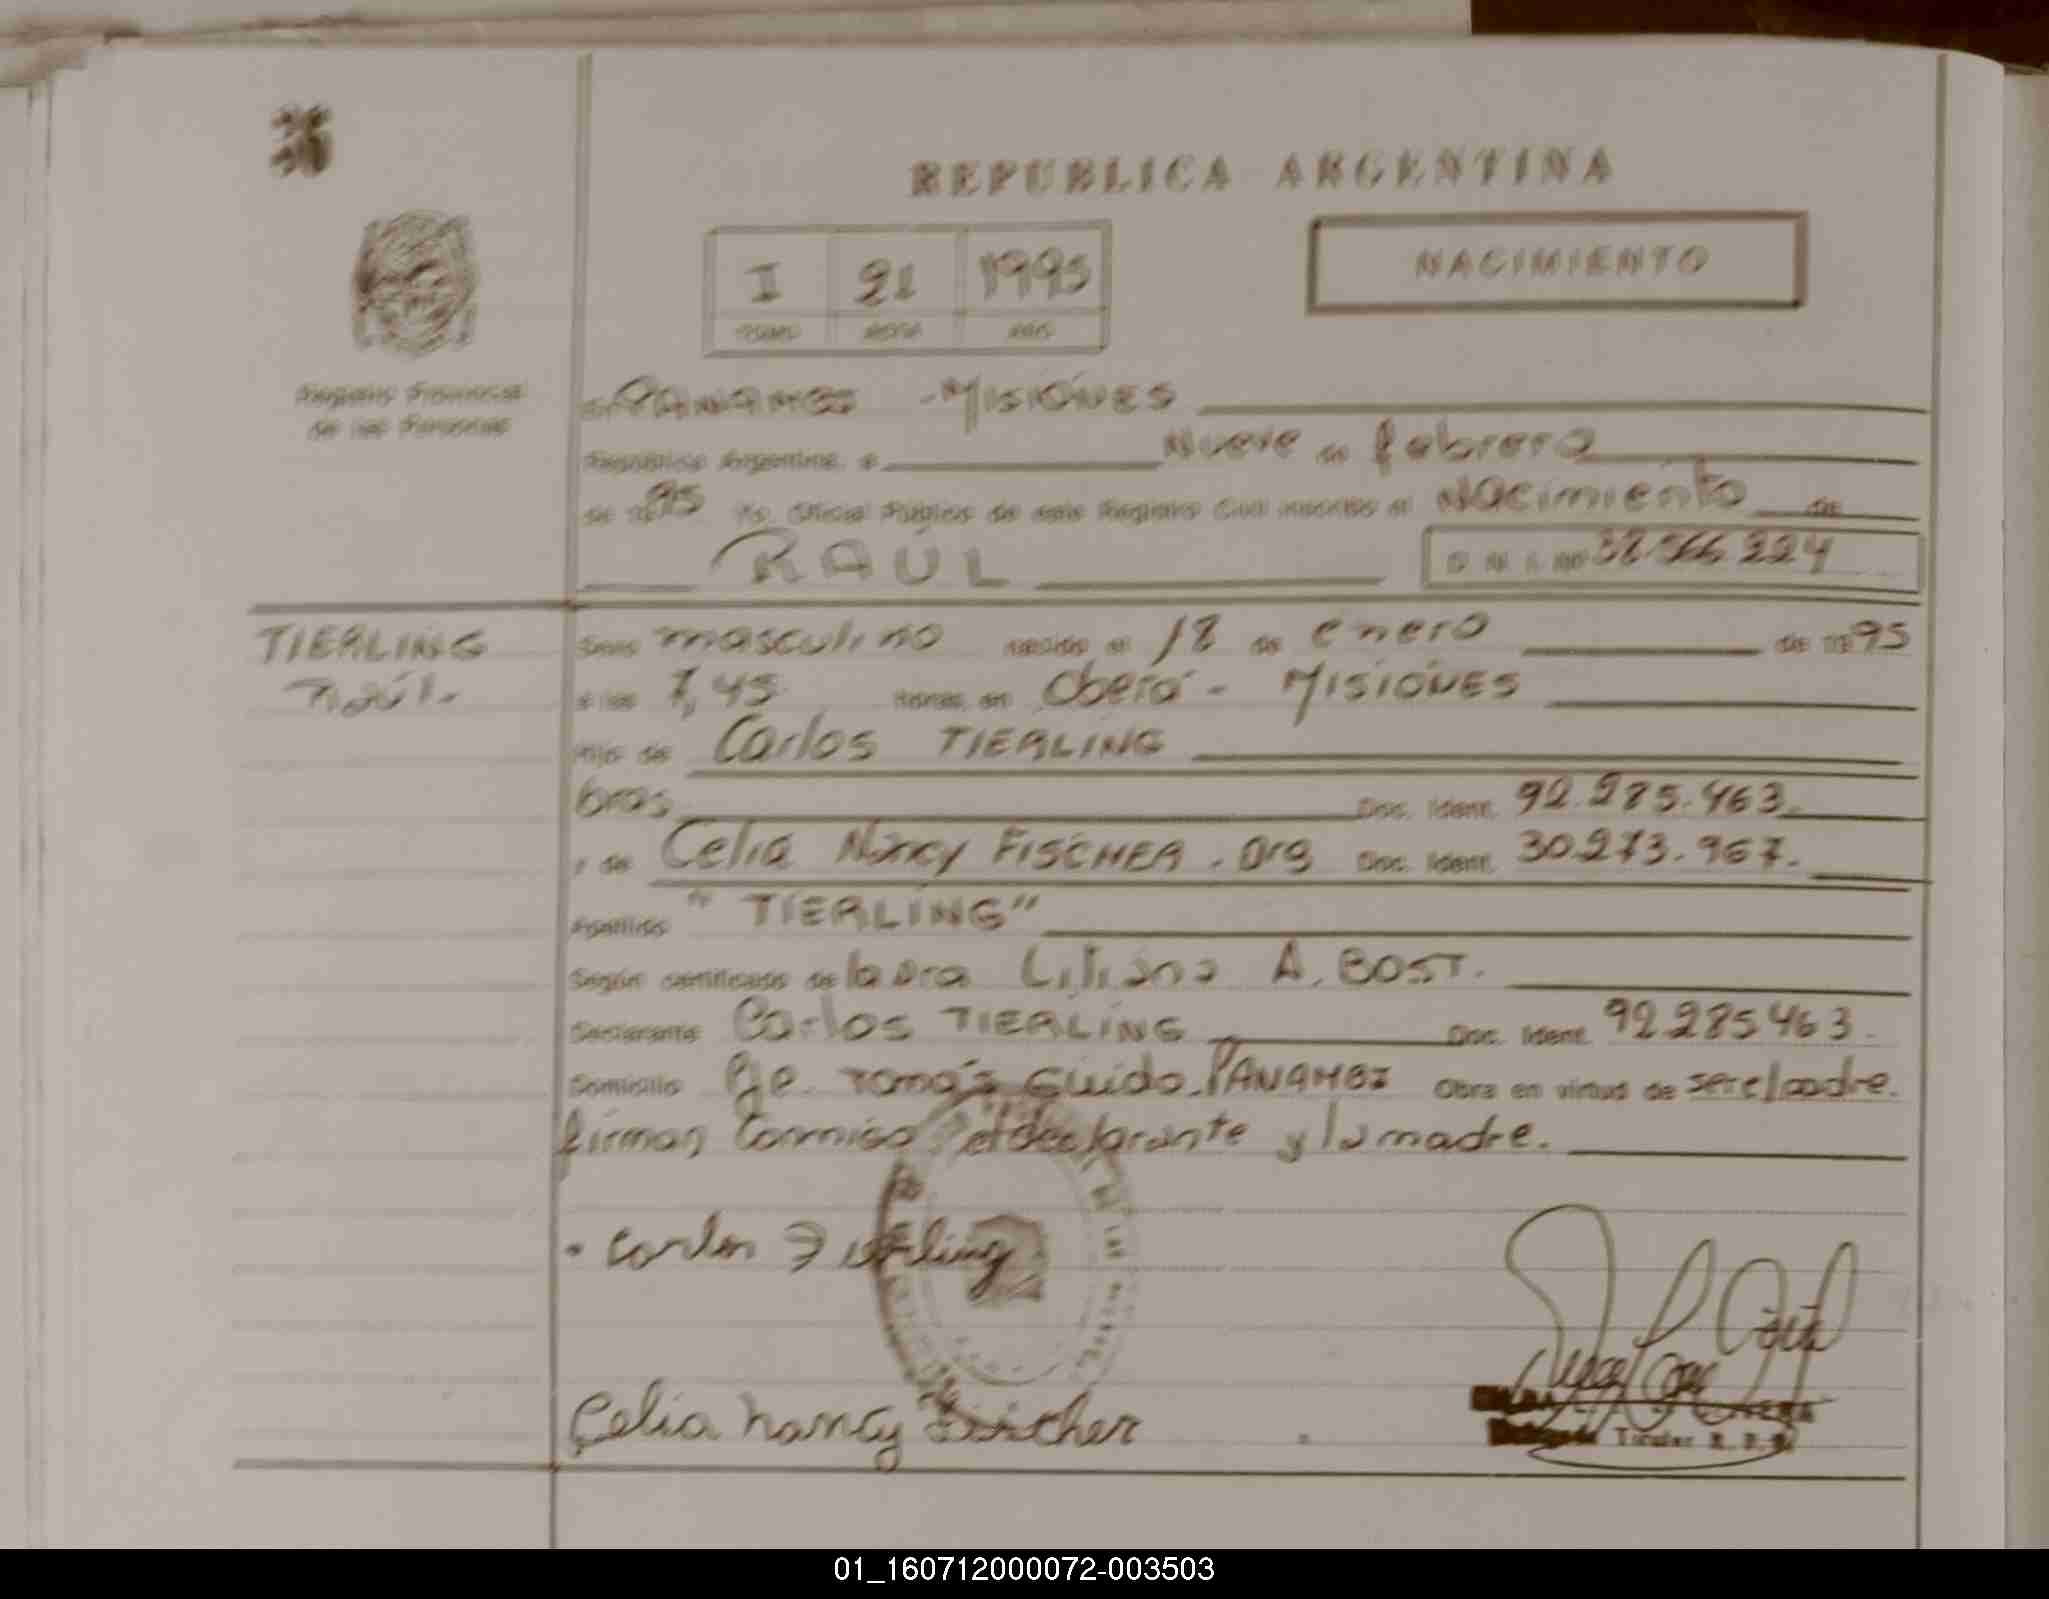 REPUBLICA ARGENTINA
NACIMIENTO
I 21 1995
TOMO ACTA AÑO
Registro Provincial
de las Personas
En PANAMBI - MISIONES
República Argentina, a Nueve de febrero
de 1995 Yo, Oficial Público de este Registro Civil inscribo el Nacimiento de
RAÚL D N I Nº 224
TIERLING
Raúl.-
Sexo masculino nacido el 18 de enero de 1995
a las 7,45 horas en Oberá - MISIONES
Hijo de Carlos TIERLING
bras. Doc. Ident. 92.285.463.
y de Celia Nancy FISCHER. arg Doc. Ident. 30.273.967.
Apellido "TIERLING"
Según certificado de la Dra Liliana A. BOST.
Declarante Carlos TIERLING Doc. Ident. 92285463.
Domicilio Pje. Tomás Guido. PANAMBI Obra en virtud de ser el padre.
firman conmigo el declarante y la madre.
Carlos Tierling
Celia Nancy Fischer
Titular R. P. P.
01_160712000072-003503